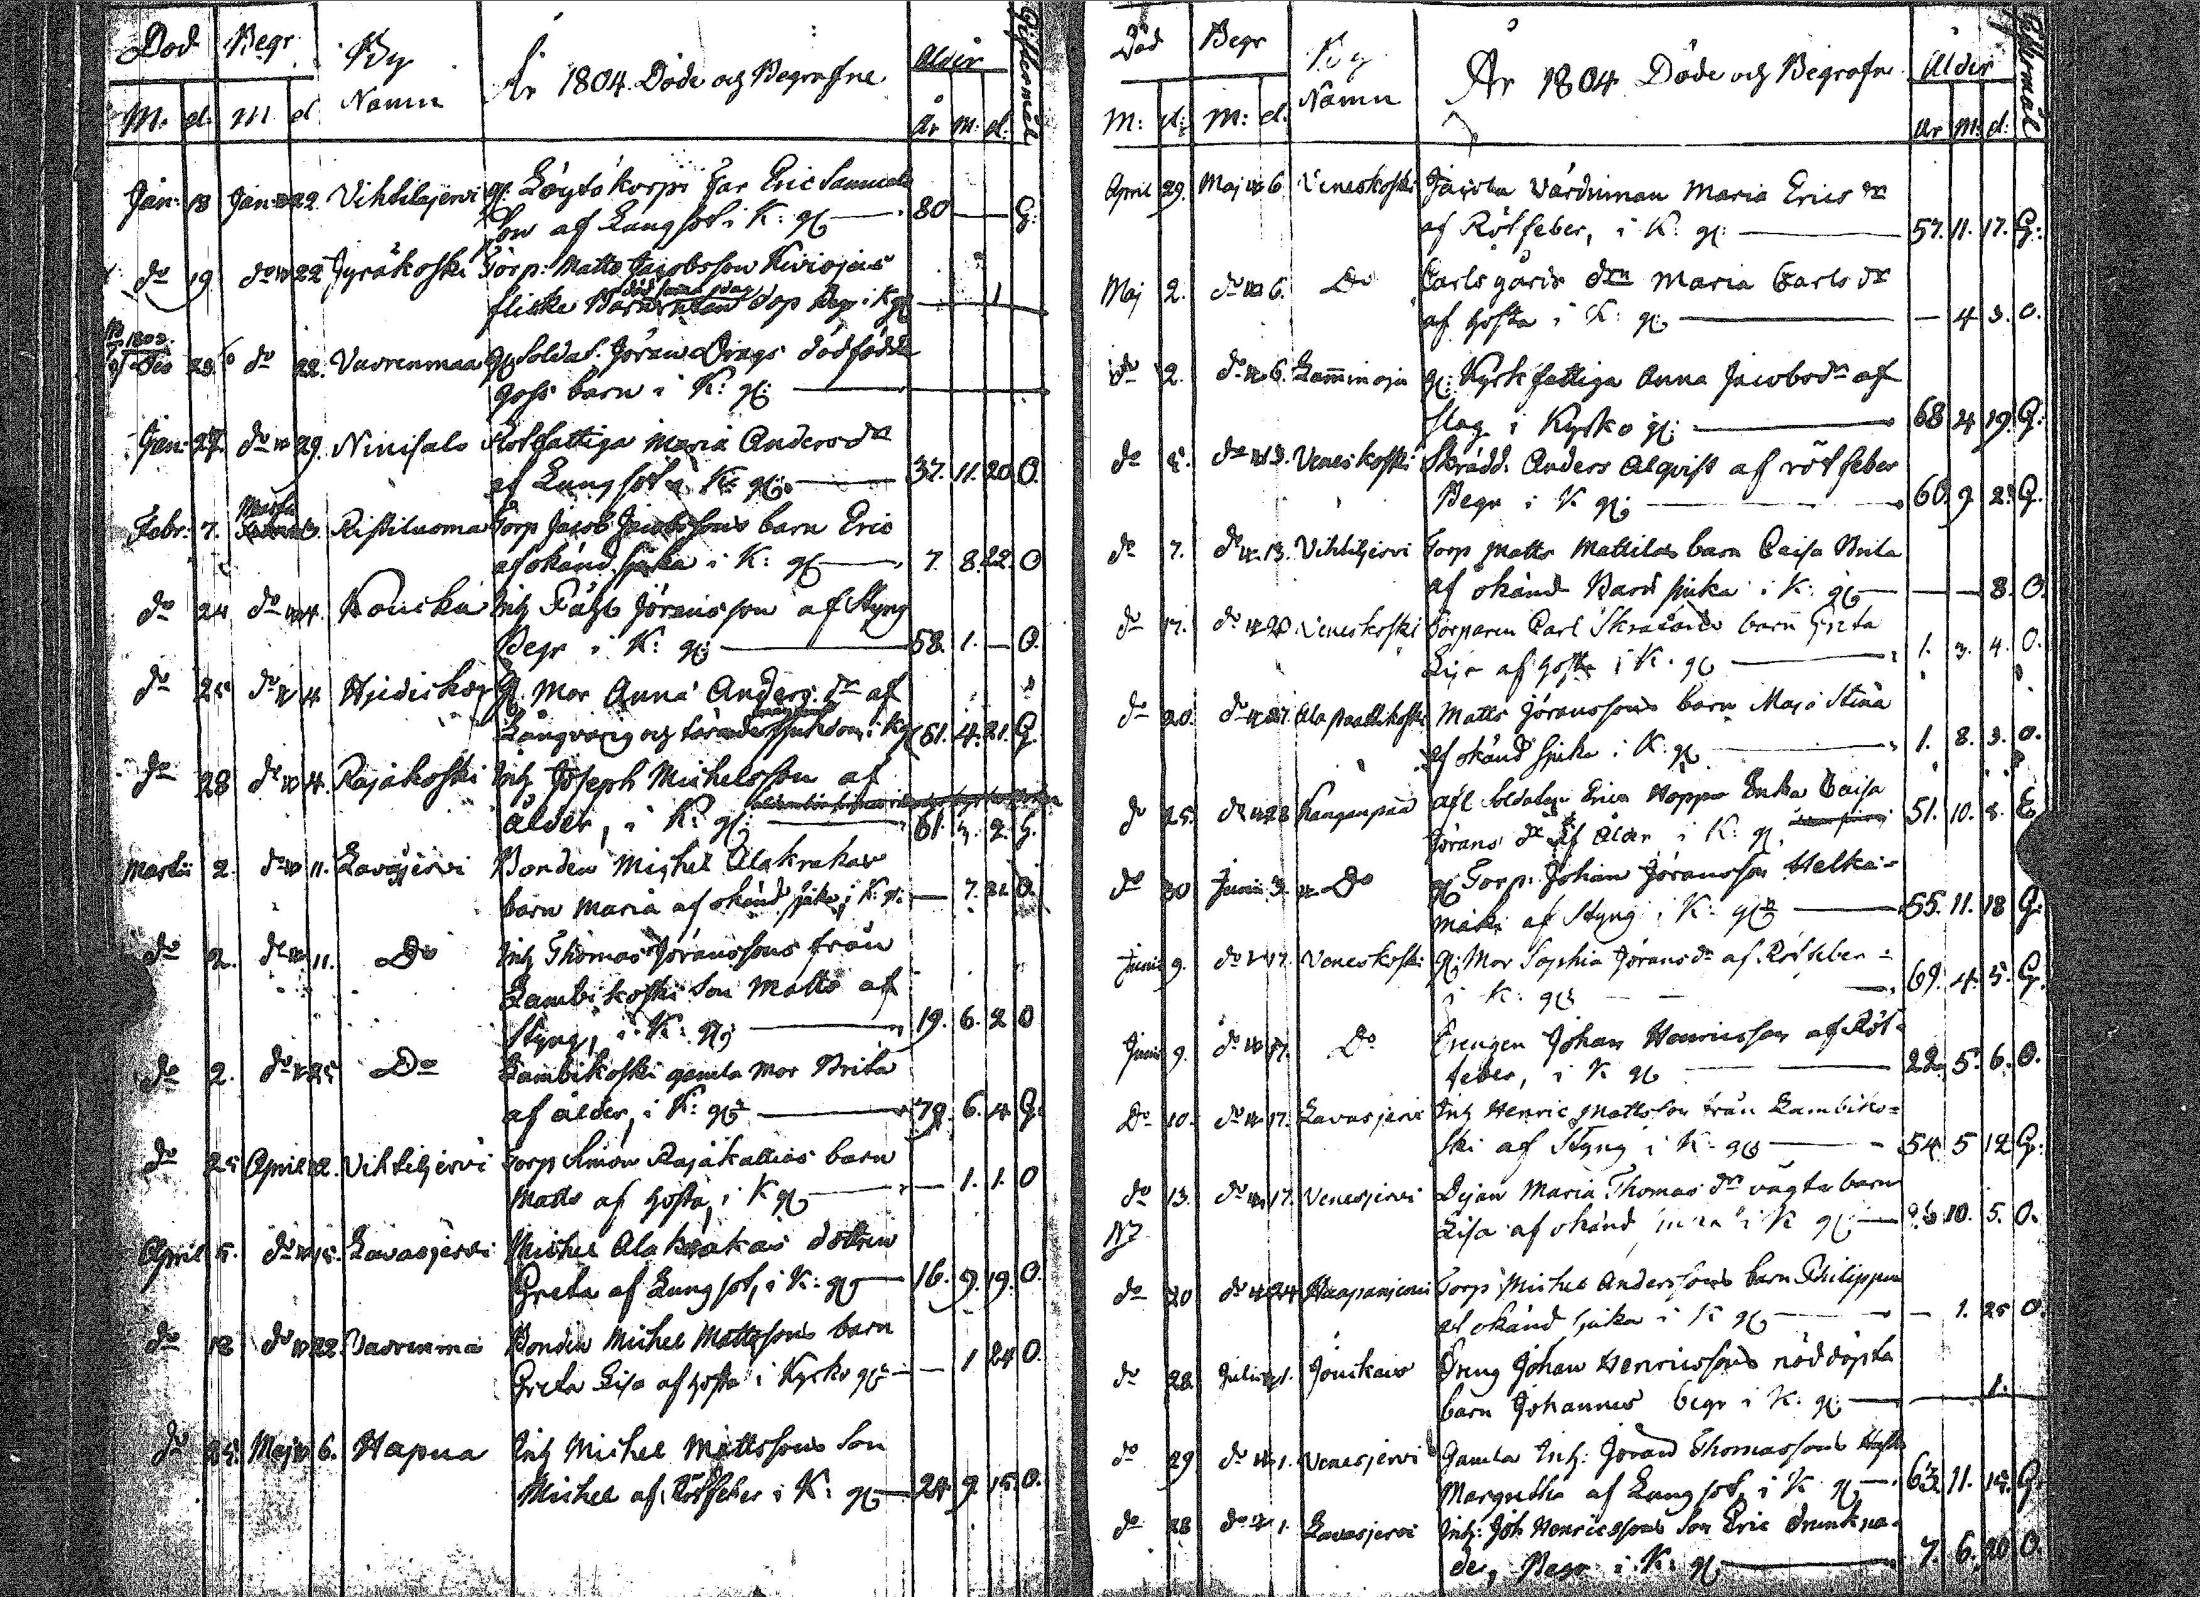 Död Begr By Namn År 1804 Döde och Begrafne Ålder Giftermål
M: d: M d År M: d:
Jan: 13 Jan: 22 Vihtiläjervi gl: Löytökorpi Far Eric Samuels
Son af Lungsot i K: gl 80 — — G:
do 19 do 22 Jyräkoski Torp: Matts Jacobssons Kiviojas
flicke Barn utan dop Begr i K gl — 1
do 22. Vuorenmaa gl Soldat. Jöran Drags dödfödde
goss barn i K: gl:
Jan: 27. do 29. Niinisalo Rotfattiga Maria Anders dr
af Lungsot i K: gl: 37. 11. 20 O.
Febr: 7. Martii Ristiluoma Torp Jacob Jacobssons barn Eric
af okänd sjuka i K: gl 7. 8. 22. O
do 24 do 4. Kouska Inh Jöransson af Styng
Begr i K: gl: 58. 1. — O.
do 25 do 4 gl. Mor Anna Anders dr af
Långvarig och tärande sjukdom i K gl 61. 4. 21. G.
do 28 do 4. Rajakoski Inh Joseph Michelsson af
ålder, i K: gl: 61. 2. G.
Martii 2. do 11. Lavajervi Bonden Michel Alakrakas
barn Maria af okänd sjuka, i K: gl. — 7. O.
do 2. do 11. Do Inh Thomas Jöranssons från
Lambikoski Son Matts af
Styng, i K: gl: 19. 6. 2 O
do 2. do 25 Do Lambikoski gamla mor Brita
af ålder, i K: gl: 79. 6. 4 G.
do 25 April 2. Vihtiljervi Torp Simon Rajakallios barn
Matts af hosta, i K gl — 1. 1. O
April 5. do 15. Lavasjervi Michel Alakrakas dottren
Greta af Lungsot, i K: gl 16. 9. 19. O.
do 12 do 22. Vuorenma Bonden Michel Mattssons barn
Greta Lisa af hosta i Kyrko gl: — 1 24 O.
do 25. Maj 6. Hapua Inh Michel Mattssons Son
Michel af Rötfeber i K: gl 24. 9. 15. O.
Död Begr By Namn År 1804 Döde och Begrafne Ålder Giftermål
M: d: M: d. År M: d:
April 29. Maj 6. Veneskoski Jaivola Värdinnan Maria Erics dr
af Rötfeber, i K: gl: 57. 11. 17. G:
Maj 2. do 6. Do Carlsgårds drn Maria Carls dr
af hosta i K: gl: — 4 3. O.
do 2. do 6. Lamminoja gl: Kyrkfattiga Anna Jacobsdr af
Slag i Kyrko gl: 68 4 19. G:
do 5. do 13. Veneskoski Skrädd. Anders Alqvist af rötfeber
Begr i K gl: 60. 9 2. G.
do 7. do 13. Vihtiljervi Torp Matts Mattilas barn Caisa Brita
af okänd Barn sjuka i K: gl — — 8. O.
do 17. do 20 Veneskoski Torparen Carl barn Greta
Lisa af hosta i K. gl 1. 3. 4. O.
do 20. do 27. Ala paattikoski Matts Jöranssons barn Maja Stina
af okänd sjuka i K: gl 1. 8. 3. O.
do 25. do 28 Kangenpää afl Soldaten Erics Hoppa Enka Caisa
Jörans dr af ålder i K: gl. 51. 10. 8. E
do 30 Junii 3. Do gl Torp: Johan Jöransson Helka=
mäki af Styng i K: gl: 55. 11. 18 G:
Junii 9. do 17. Veneskoski gl: Mor Sophia Jörans dr af Rötfeber =
i K: gl: 69. 4. 5. G.
Junii 9. do 17. Do Drengen Johan Henricsson af Röt=
feber, i K gl 22. 5. 6. O.
Do 10. do 17. Lavasjervi Inh Henric Mattsson från Lambiko=
ski af Styng i K: gl 54 5 12 G:
do 13. do 17. Venesjervi Dejan Maria Thomas dr oägta barn
Lisa af okänd i K gl: 10. 5. O.
do 20 do 24 Haapanjervi Torp Michel Anderssons barn Philippus
af okänd sjuka i K gl — 1. 25 O.
do 28 Julii 1. Jouckais Dreng Johan Henricssons nöddöpta
barn Johannes begr i K: gl: 1.
do 29 do 1. Venesjervi Gamla Inh: Jöran Thomassons
Margretha af Lungsot, i K gl 63. 11. 15. G
do 28 do 1 Lavasjervi Inh: Joh Henricssons Son Eric drunkna=
de, Begr i K: gl: 7. 6. 20 O.